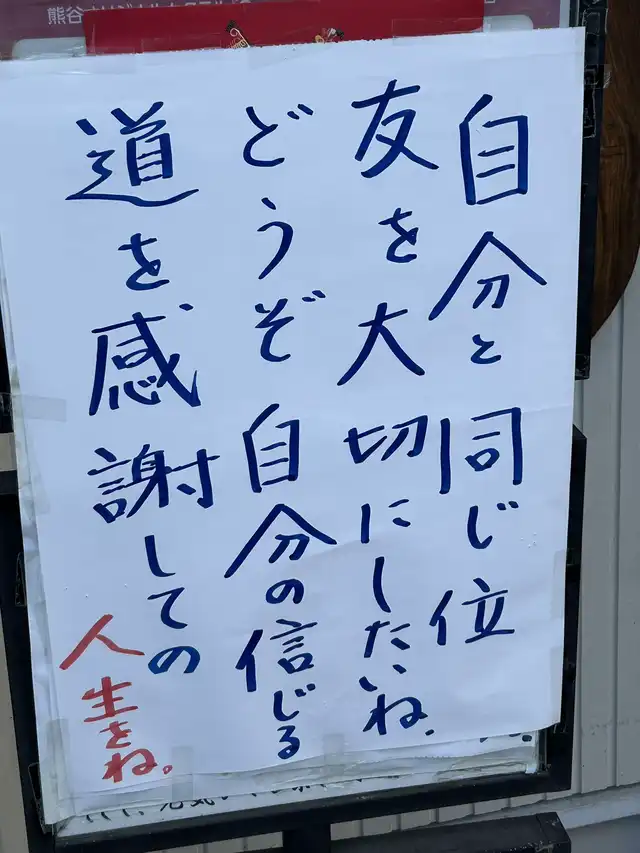 熊谷
自分と同じ位
友を大切にしたいね.
どうぞ自分の信じる
道を感謝しての
人生をね。